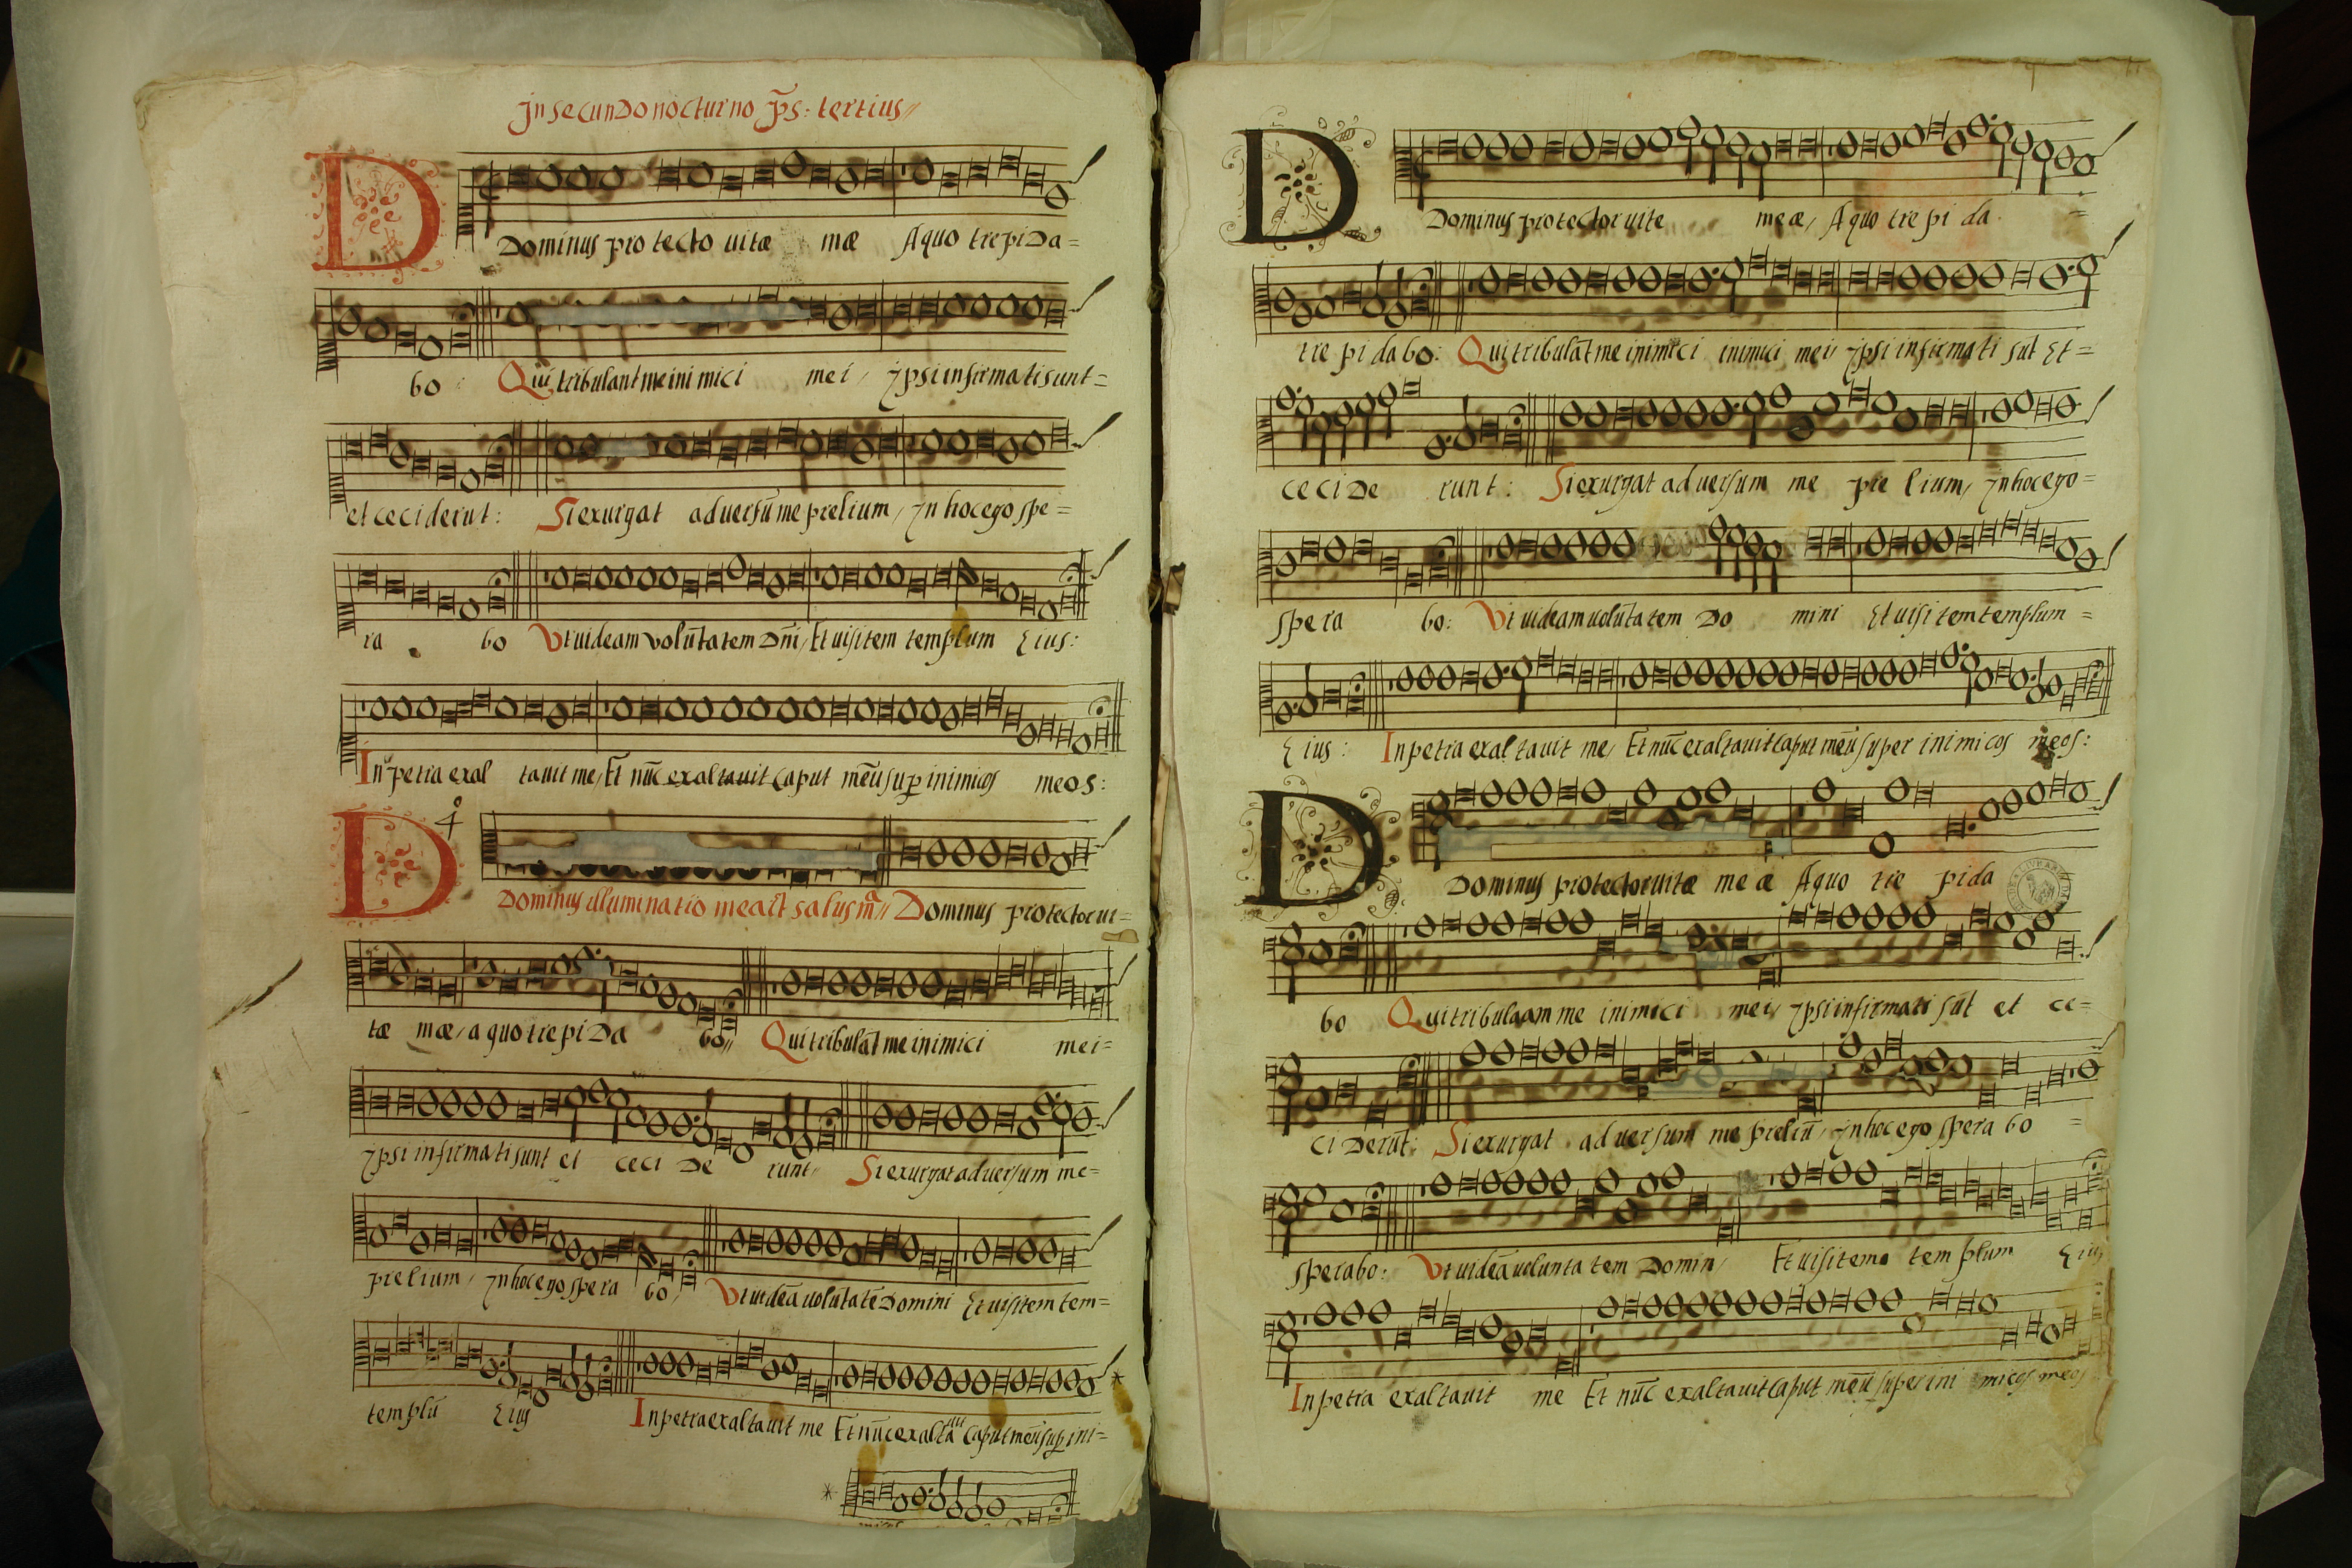 Jn secundo nocturno p̃s: tertius//
D
Dominus protecto uitæ mæ Aquo trepida=
bo: Qui tribulant me inimici mei, ypsi infirmati sunt=
et ceciderut: Si exurgat aduersũ me prelium, yn hoc ego spe=
ra bo Vt uideam volũtatem Dñi, Et uisitem templum Eius:
In petra exal tauit me, Et nũc exaltauit caput meũ sup inimicos meos:
D 4
Dominus illuminatio mea et salus mª// Dominus protector ui=
tæ mæ, a quo trepida bo// Qui tribulãt me inimici mei=
ypsi infirmati sunt et ceci de runt, Si exurgat aduersum me=
prelium, yn hoc ego spera bo, Vt uideã uolutatẽ Domini Et uisitem tem=
templũ Eius In petra exaltauit me Et nũc exalta uit caput meũ sup ini=
D
Dominus protector uite meæ, Aquo trepi da. =
tre pi da bo: Qui tribulãt me inimici inimici mei, ypsi infirmati sũt Et=
ceci de runt: Si exurgat aduersum me pre lium, yn hoc ego=
spera bo: Vt uideam uolũtatem Do mini Et uisi tem templum=
Eius: In petra exaltauit me, Et nũc exaltauit caput meũ super inimicos meos:
D
Dominus protector uitæ meæ Aquo tre pida
bo Qui tribulaam me inimici mei, ypsi infirmati sũt et ce=
ci derũt: Si exurgat aduersum me preliũ, yn hoc ego spera bo =
sperabo: Vt uideã uolunta tem Domin, Et uisitem tem plum Eius
In petra exaltauit me Et nũc exaltauit caput meũ super ini micos meos